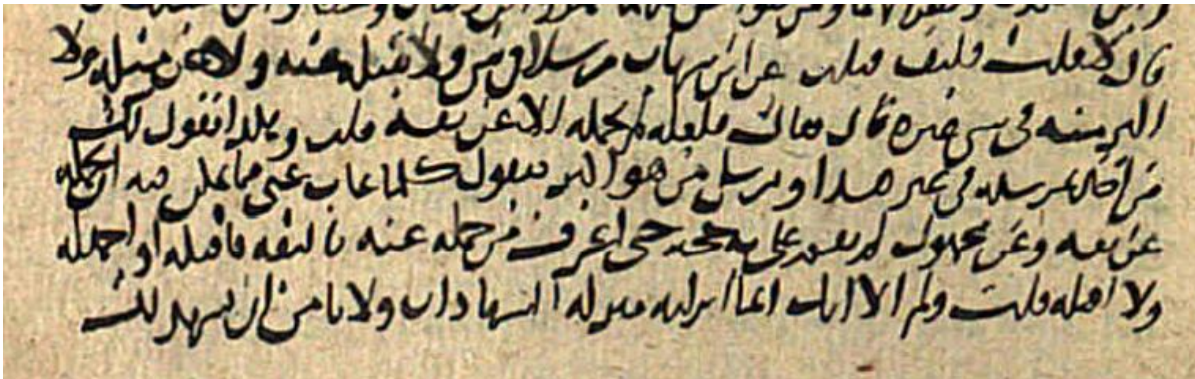 قال لا قلت فكيف قبلت عن ابن شهاب مرسلا في شي ولا تقبله عنه ولا عن مثله ولا
اكبر منه في شي غيره قال فقال فلعله لم يحمله الا عن ثقة قلت وهكذا نقول لك
من اخذ بمرسله في غير هذا ومرسل من هو اكبر فيقول كلما غاب عني مما يمكن فيه ان يحمله
عن ثقة وعن مجهول لم تقم علي به حجة حتى اعرف من حمله عنه بالثقة فاقبله او اجهله
ولا اقبله قلت ولم الا انك انما انزلته منزلة الشهادات ولا تامن ان يشهد لك